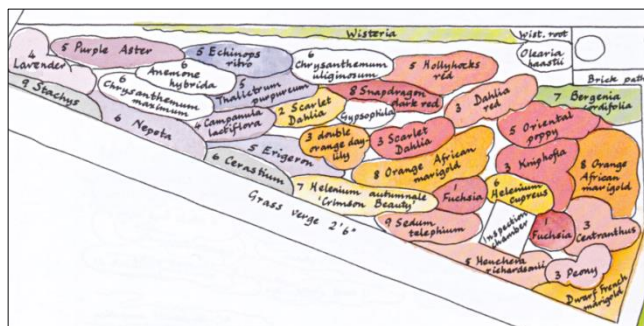 Wisteria
Wist. root
Olearia
haastii
Brick path
4
Lavender
5 Purple Aster
5 Echinops
ritro
6
Chrysanthemum
uliginosum
5 Hollyhocks
red
6
Anemone
hybrida
9 Stachys
6
Chrysanthemum
maximum
5
Thalictrum
purpureum
8 Snapdragon
dark red
3 Dahlia
red
7 Bergenia
cordifolia
2 Scarlet
Dahlia
Gypsophila
6 Nepeta
4 Campanula
lactiflora
3 double
orange day-
lily
3 Scarlet
Dahlia
5 Oriental
poppy
5 Erigeron
6 Cerastium
8 Orange African
marigold
3 Kniphofia
8 Orange
African
marigold
7 Helenium autumnale
'Crimson Beauty'
1
Fuchsia
6
Helenium
Cupreus
Grass verge 2'6"
9 Sedum
telephium
Inspection
chamber
1
Fuchsia
3
Centranthus
5 Heuchera
richardsonii
3 Peony
Dwarf French
marigold